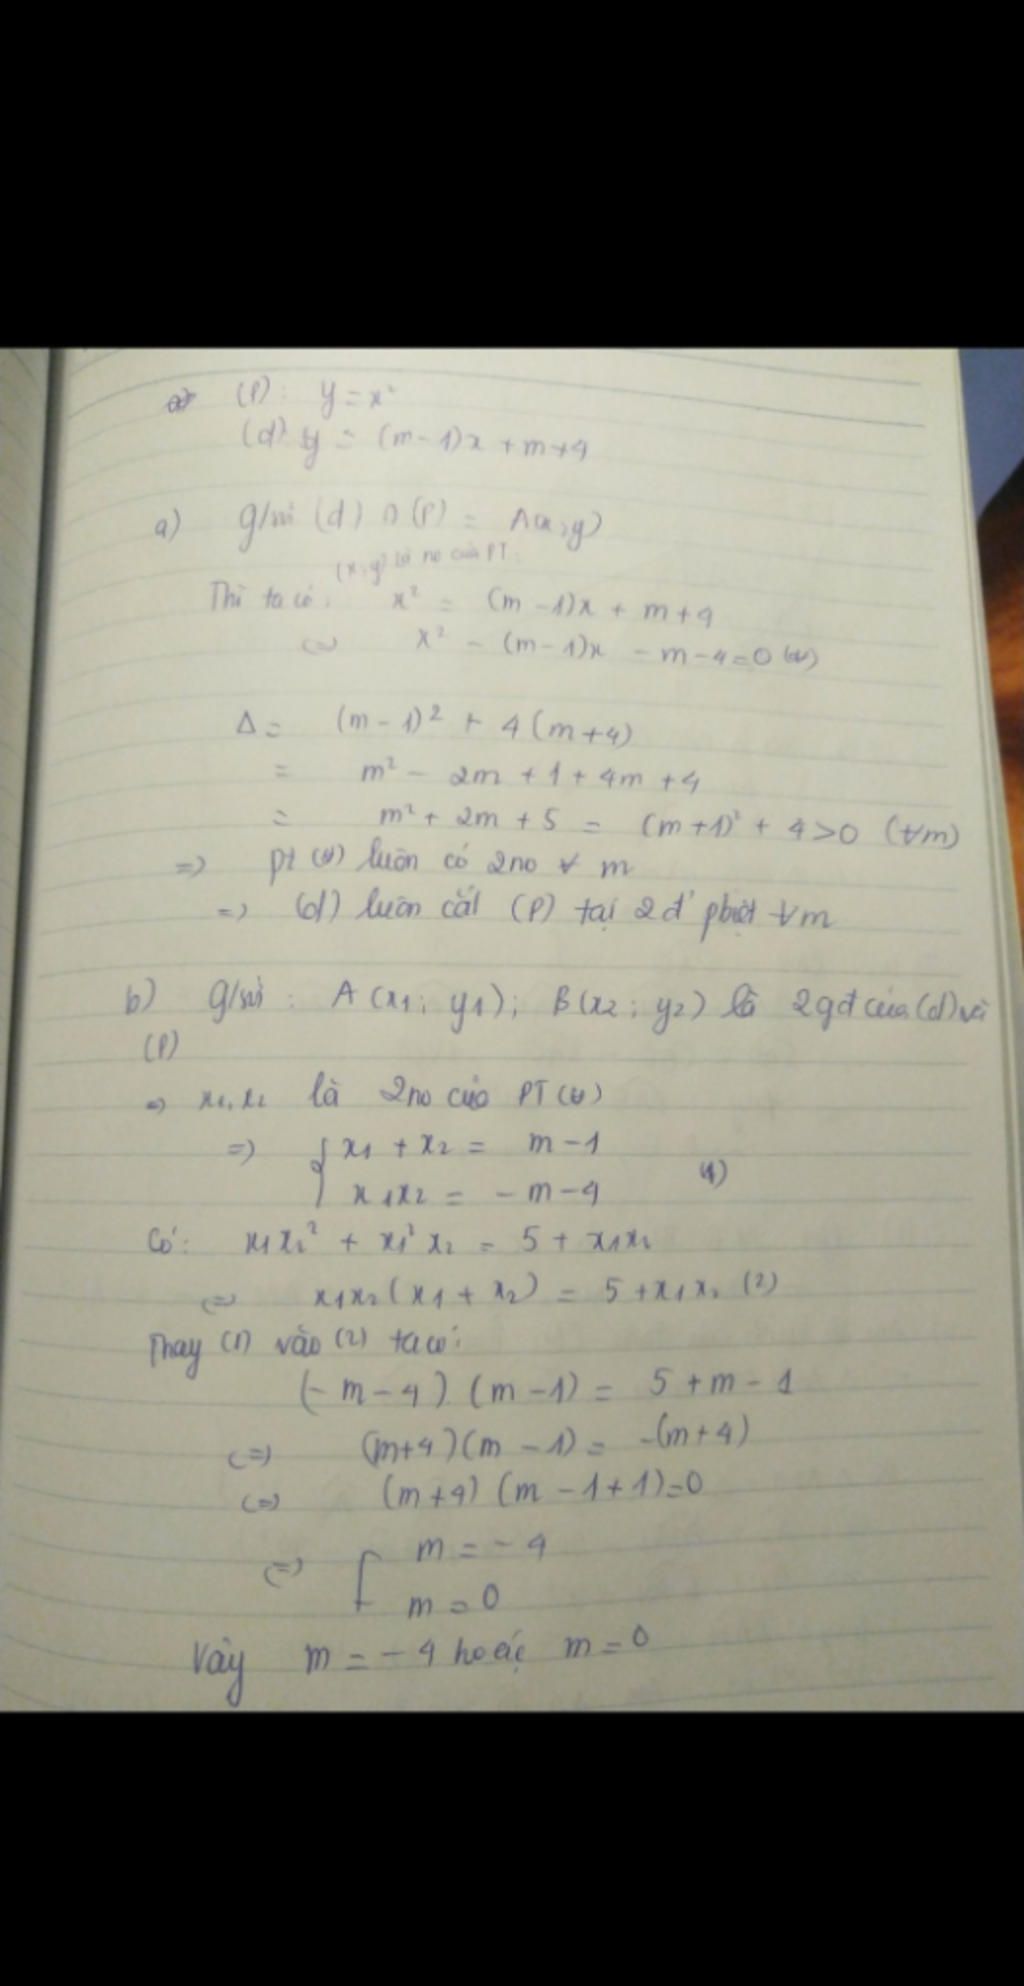 (P): y = x²
(d): y = (m-1)x + m+4
a) g/sử (d) ∩ (P) = A(x;y)
(x;y) là no của PT:
Thì ta có: x² = (m-1)x + m+4
<=> x² - (m-1)x - m-4=0 (*)
Δ = (m-1)² + 4(m+4)
= m² - 2m + 1 + 4m + 4
= m² + 2m + 5 = (m+1)² + 4>0 (∀m)
=> pt (*) luôn có 2no ∀ m
=> (d) luôn cắt (P) tại 2đ' pbiệt ∀m
b) g/sử: A(x1; y1); B(x2; y2) là 2gđ của (d) và
(P)
=> x1, x2 là 2no của PT(*)
=> { x1 + x2 = m-1
x1x2 = -m-4 (1)
Có: x1x2² + x1²x2 = 5 + x1x2
<=> x1x2(x1 + x2) = 5 + x1x2 (2)
Thay (1) vào (2) ta có:
(-m-4)(m-1) = 5 + m - 1
<=> (m+4)(m-1) = -(m+4)
<=> (m+4)(m-1+1)=0
<=> [ m = -4
m = 0
Vậy m = -4 hoặc m = 0